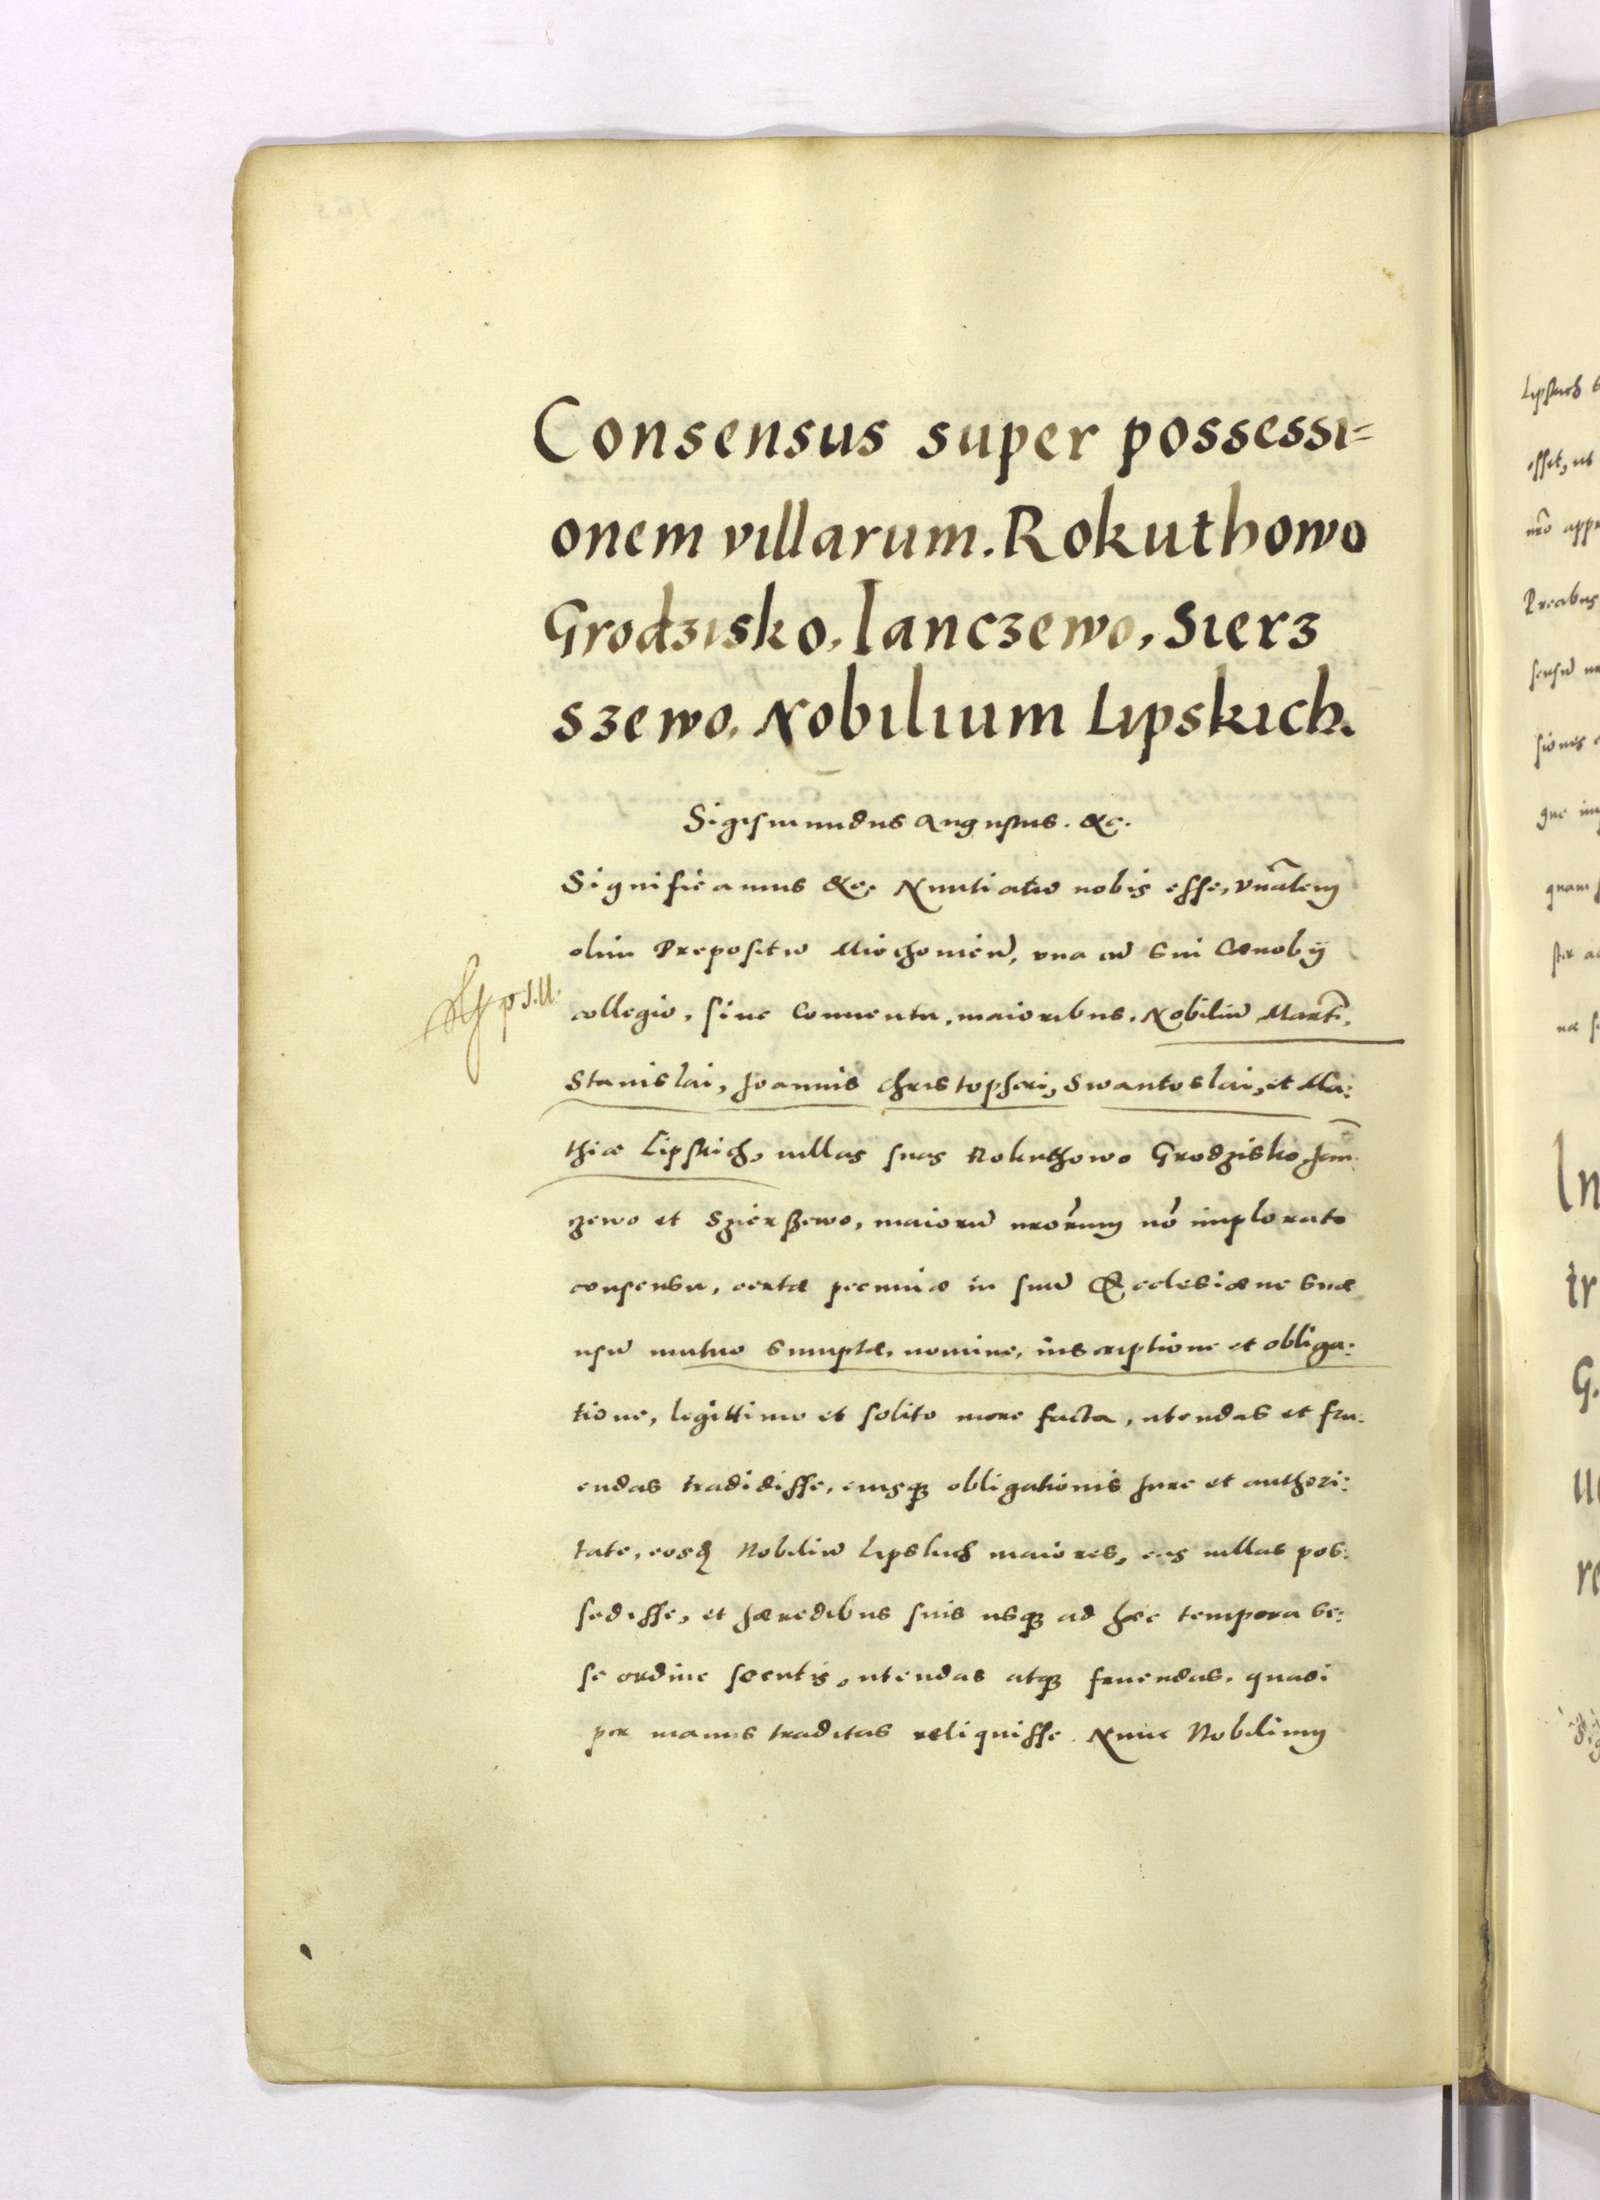 Consensus super possessi=
onem villarum. Rokuthowo
Grodzisko, Janczewo, Sierz
szewo. Nobilium Lipskich.
Sigismundus Augustus. &c.
Significamus &c. Nuntiatũ nobis esse,
olim Prepositũ Miechovieñ, una cũ sui Cænobÿ
collegio, sive Conventu, maioribus, Nobiliũ Marti,
Stanislai, Joannis Christopheri, Swantoslai, et Ma:
thiæ Lipskich, villas suas Rokuthowo Grodzisko, Jan
zewo et Szierszewo, maiorũ nrõrum nõ implorato
consensu, certæ pecuniæ in suũ Ecclesiæve suæ
usũ mutuo sumptæ, nomine, inscriptione et obliga:
tione, legittimo et solito more facta, utendas et fru:
endas tradidisse, eiusqʒ obligationis Jure et authori:
tate, eosdẽ Nobiliũ Lipskich maiores, eas villas pos:
sedisse, et hæredibus suis usqʒ ad hæc tempora se:
se ordine secutis, utendas atqʒ fruendas, quasi
per manus traditas reliquisse. Nunc Nobilium
Lipskich